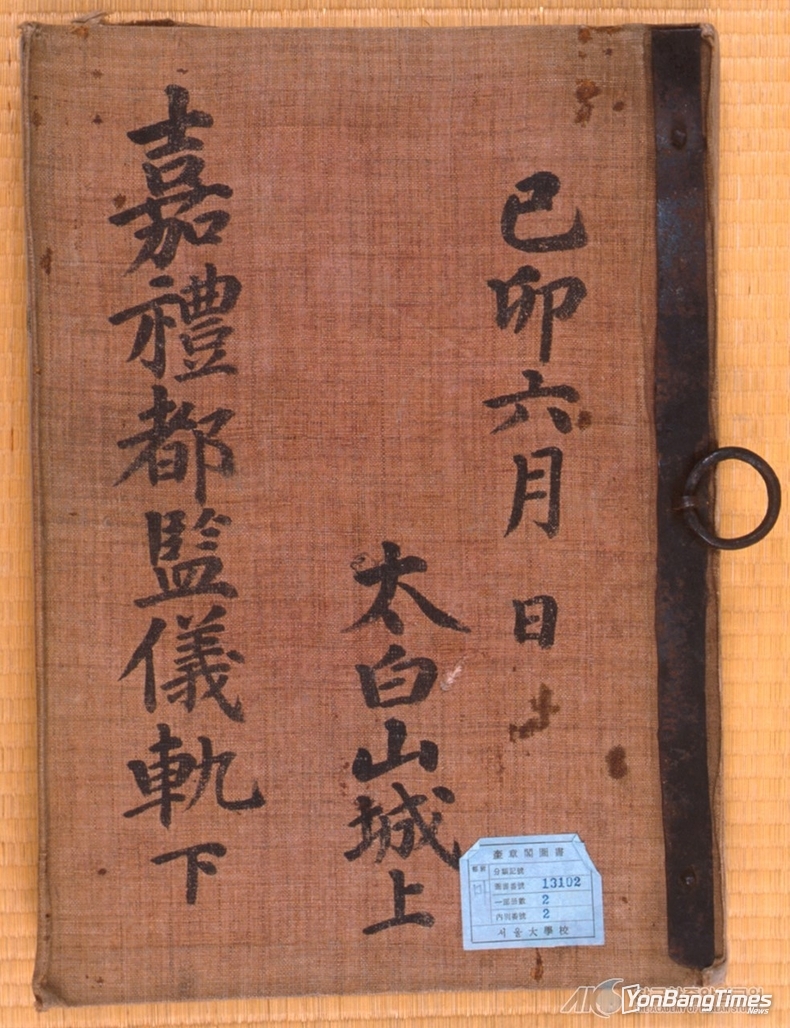 己卯六月 日
太白山城上
嘉禮都監儀軌下
奎章閣圖書
分類記號
圖書番號 13102
一部冊數 2
番號 2
서울大學校
YonBangTimes
News